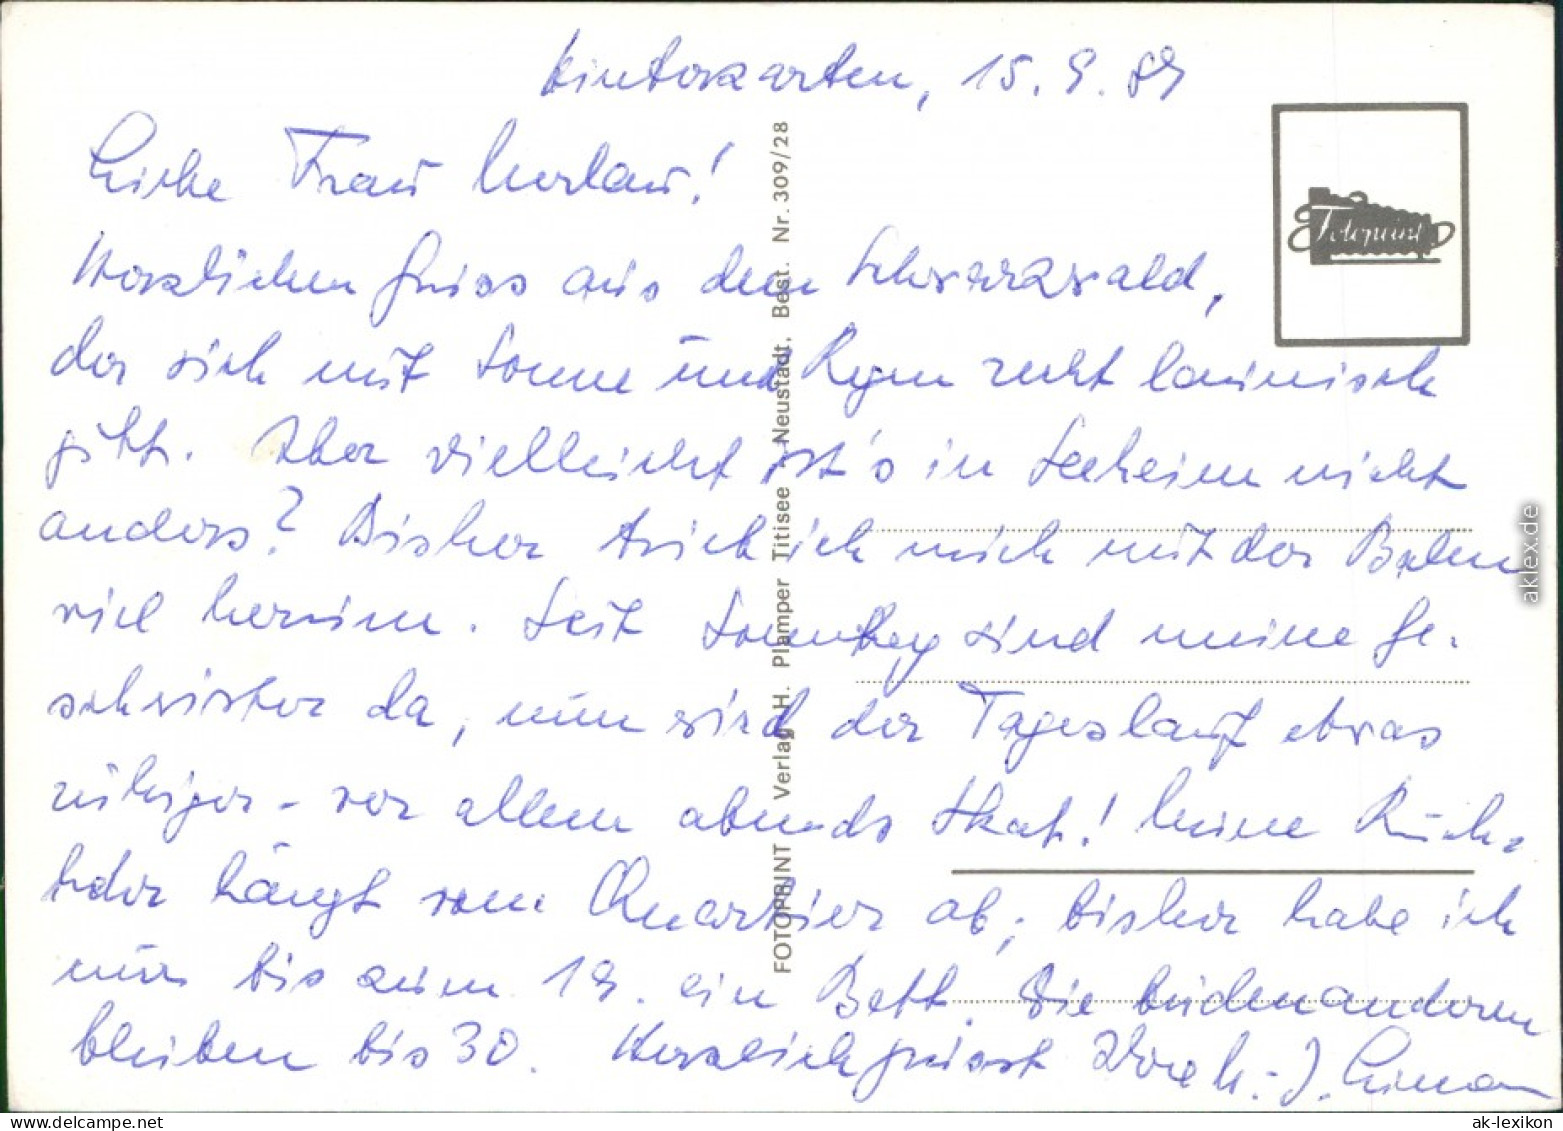 Hinterzarten, 15. 9. 89
Liebe Frau
Herzlichen Gruss aus dem Schwarzwald,
der sich mit Sonne und Regen recht launisch
gibt. Aber vielleicht ist's in Seeheim nicht
anders? Bisher trieb ich mich mit der Bahn
viel herum. Seit Sonntag sind meine Ge-
schwister da, nun wird der Tageslauf etwas
ruhiger - vor allem abends Skat! Meine Rück-
kehr hängt vom Quartier ab; bisher habe ich
nur bis zum 19. ein Bett. Die beiden anderen
bleiben bis 30. Herzlich grüsst Ihre
FOTOPRINT Verlag H. Plamper Titisee-Neustadt, Best. Nr. 309/28
Fotoprint
aklex.de
www.delcampe.net
ak-lexikon